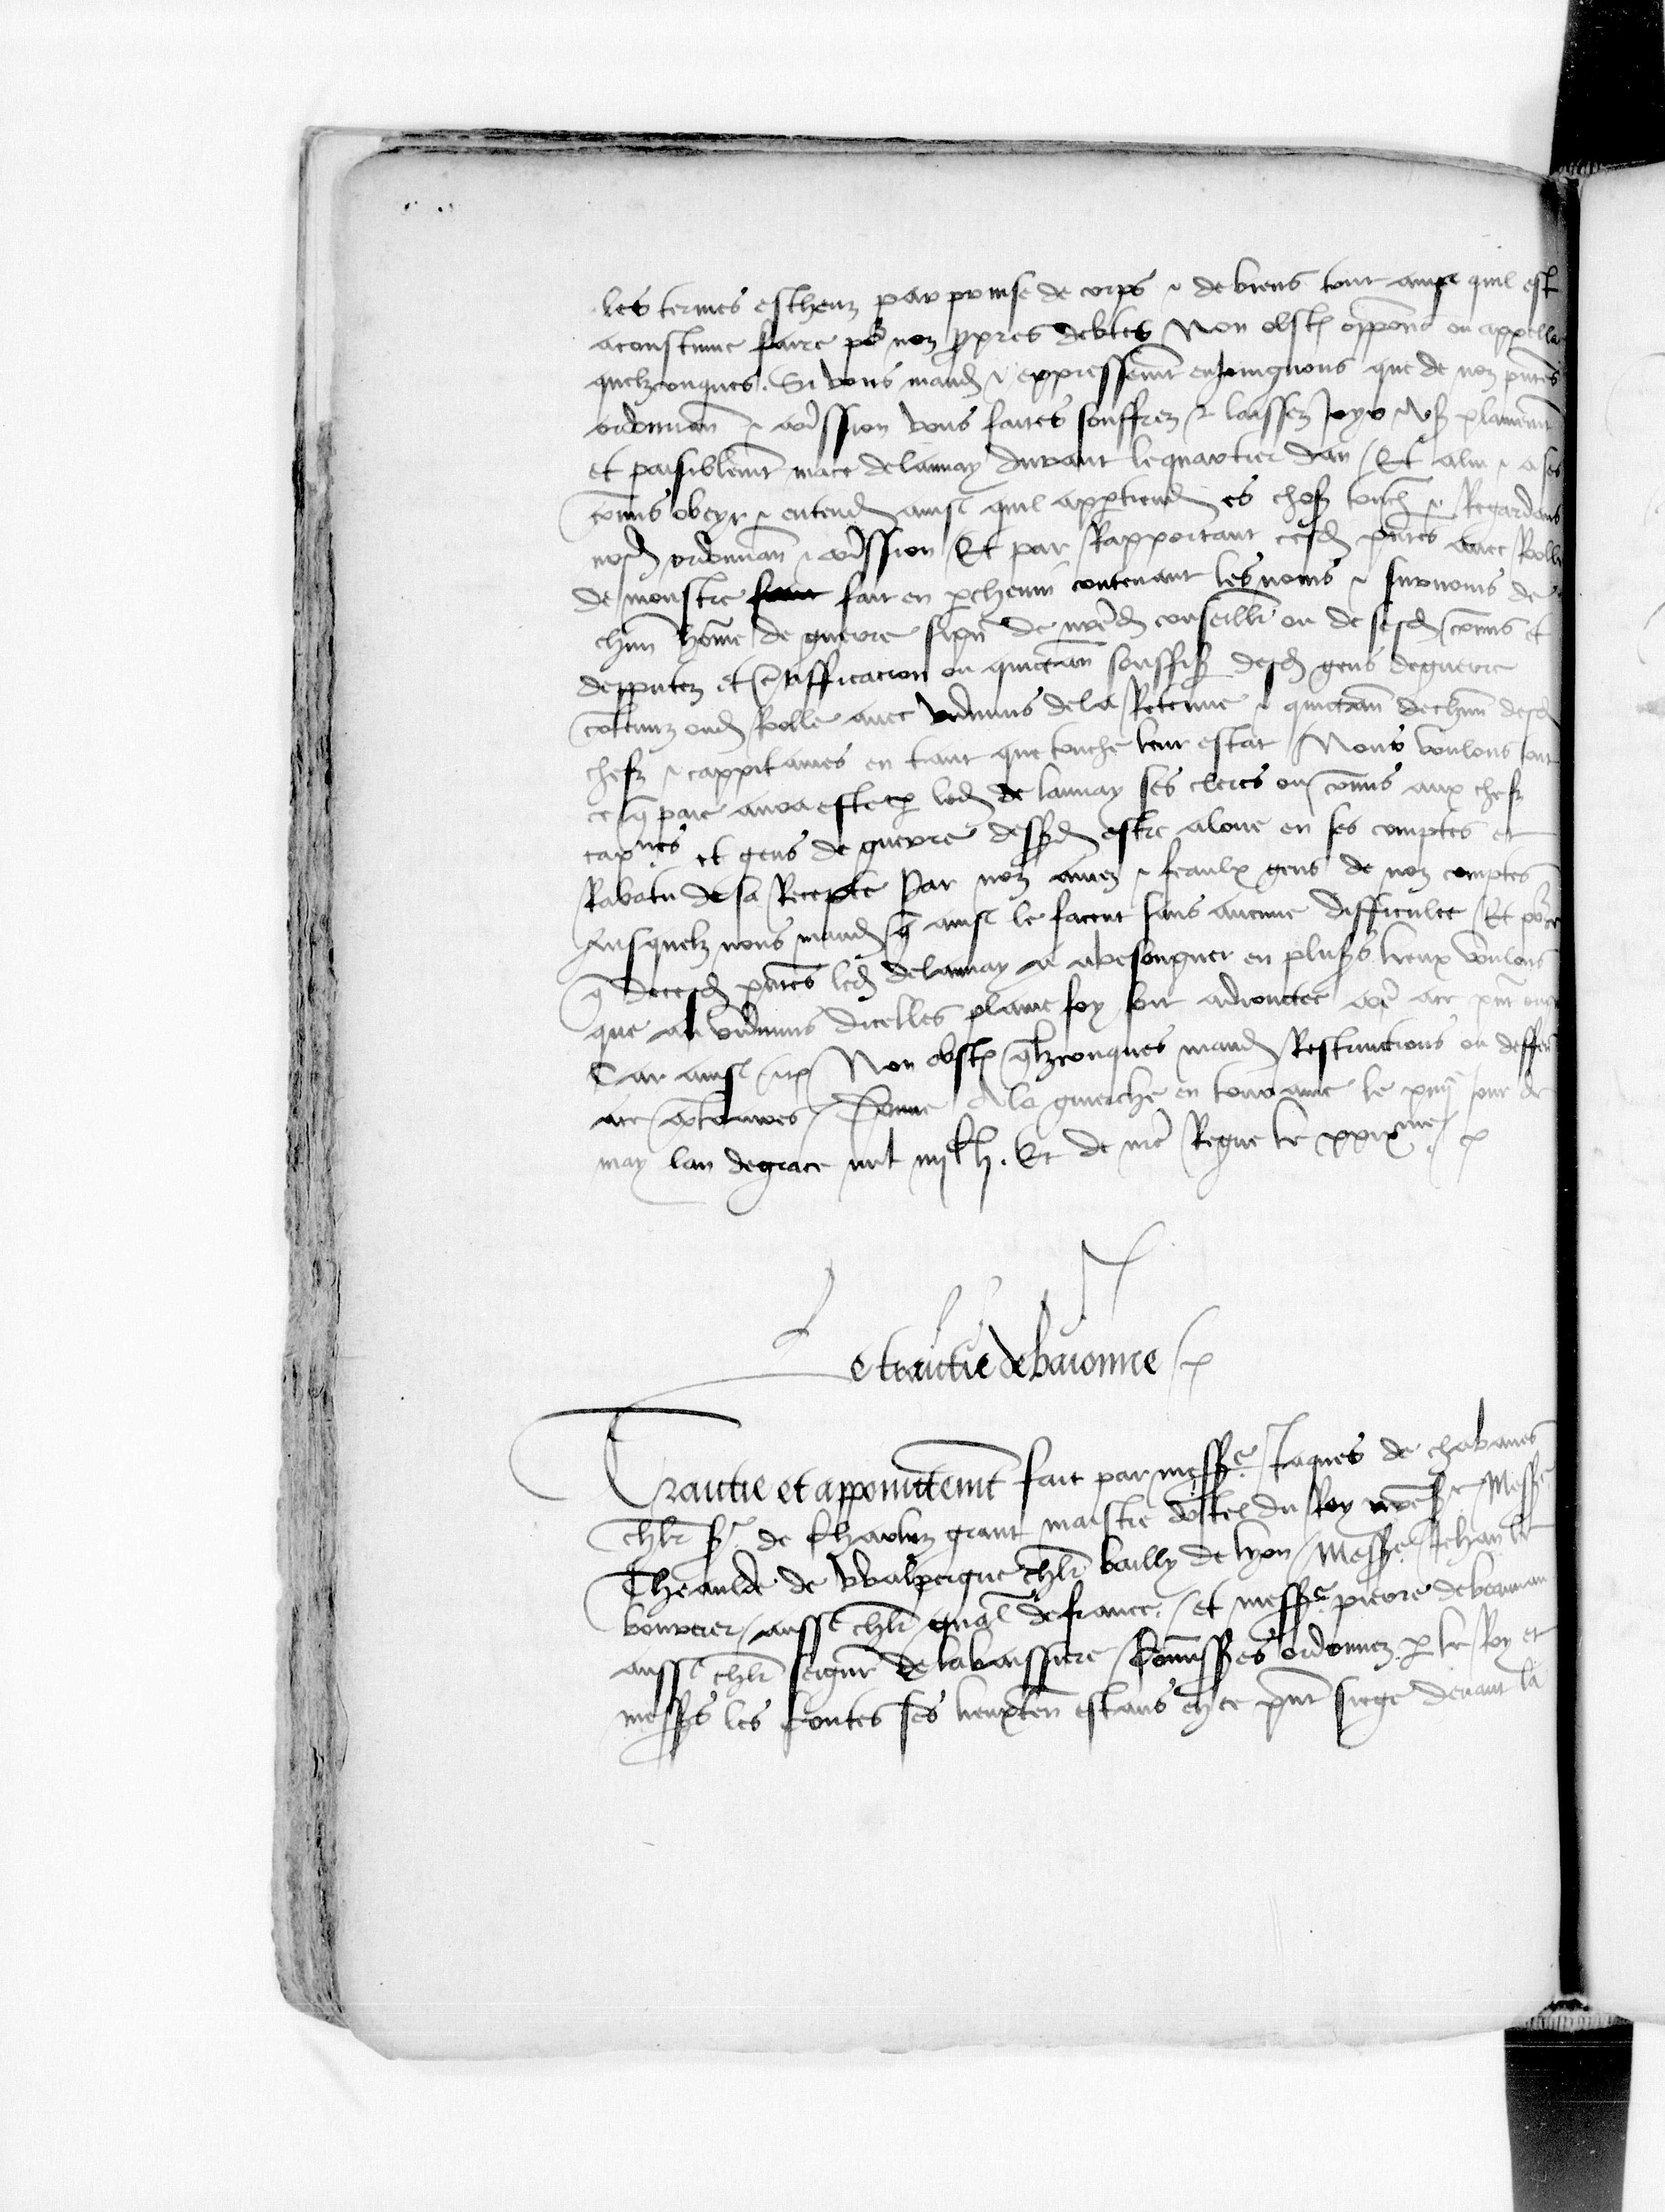 les termes escheuz par prinse de corps & de biens tout ainsi quil est
acoustume faire po noz ppres debtes Non obst opposions ou appella
quelzconques. Si vous mand & expressement enjoingnons que de noz pntes
ordonnan & comission vous faites souffrez & laissez joyr & us plainemt
et paisiblemt mace delaunay durant lequartier dan Et a lui & a ses
comis obeyr & entend ainsi quil appartiend es choses touch & Regardans
nosd ordonnan & comission Et par Rapportant cesd pntes avec Rolle
de monstre fait en pchemin contenant les noms & surnoms de
chun home de guerre signe de nred conseiller ou de sesd comis et
depputez et certifficacion ou quictan souffis desd gens deguerre
contenuz oud Rolle avec vidimus dela Retenue & quictan dechun desd
chefz & cappitaines en tant que touche leur estat Nous voulons tout
ce q paie aura este p led de launay ses clercs ou comis aux chefz
cappnes et gens de guerre dessusd estre aloue en ses comptes et
Rabatu de sa Recepte Par noz amez & feaulx gens de noz comptes
Ausquelz nous mand q ainsi le facent sans aucune difficulte Et pource
q decesd pntes led delaunay a abesongner en plusrs lieux voulons
que au vidimus dicelles plaine foy soit adjoustee come a ce pnt
Car ainsi etc Non obst qlzconques mand Restrinctions ou deffen
ace contraires Donne A la guierche en touraine le xiiije jour de
may lan degrace mil iiij c lj. Et de nre Regne le xxixme
Le traictie debaionne
Traictie et appoinctemt fait par messre Jaques de chabanes
chlr sr de Charluz grant maistre dostel du Roy nresr Messre
Theaulde de Valpergue chlr bailly de lyon Messre Jehan le
boursier aussi chlr gnal defrance et messre pierre debeauuau
aussi chlr seignr delabaissiere Commissres ordonnez p le Roy et
messrs les Contes ses lieuxten estans en ce pnt siege devant la